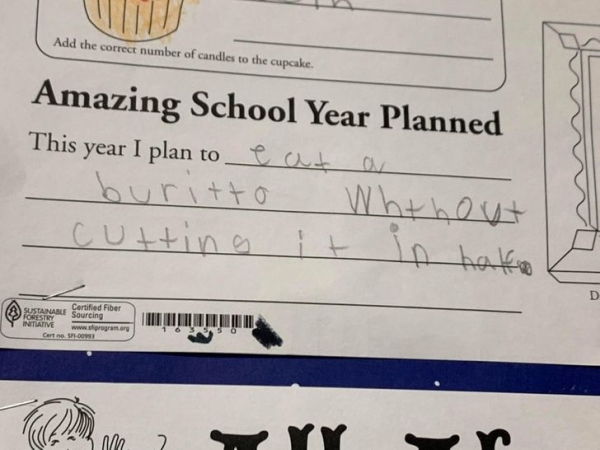 Add the correct number of candles to the cupcake.
Amazing School Year Planned
This year I plan to eat a
buritto Whthout
cutting it in half
SUSTAINABLE FORESTRY INITIATIVE
Certified Fiber Sourcing
www.sfiprogram.org
Cert no. SFI-00993
163550
D